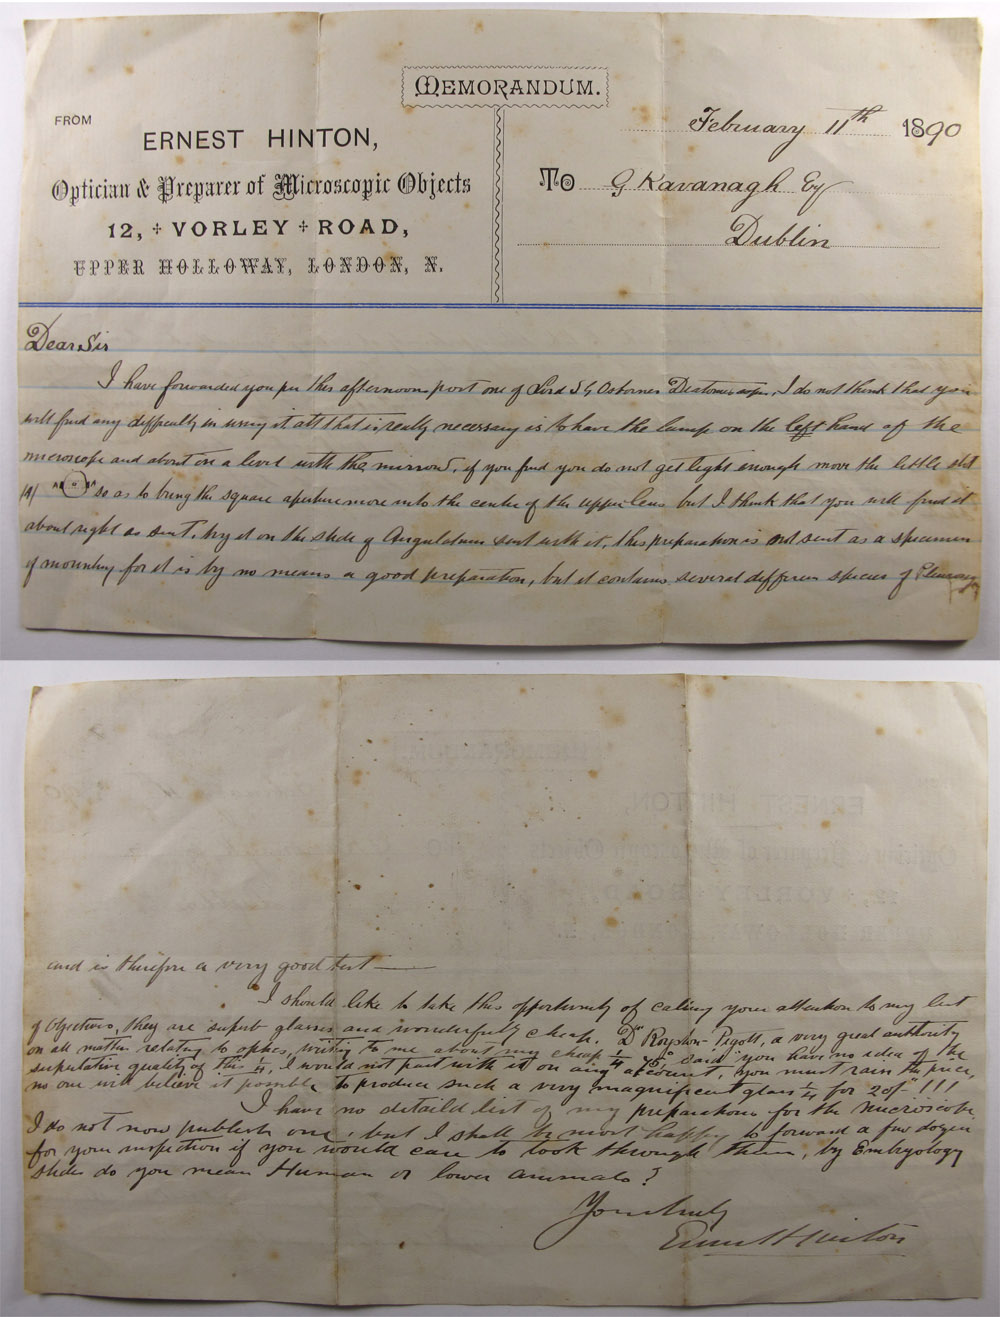 MEMORANDUM.
FROM
ERNEST HINTON,
Optician & Preparer of Microscopic Objects
12, VORLEY ROAD,
UPPER HOLLOWAY, LONDON, N.
February 11th 1890
To G Kavanagh Esq
Dublin
Dear Sir
I have forwarded you per this afternoons post one of Lord S G Osbornes , I do not think that you
will find any difficulty in using it all that is really necessary is to have the lamp on the left hand of the
microscope and about on a level with the mirror, if you find you do not get light enough move the little slit
so as to bring the square aperture more into the centre of the upper lens but I think that you will find it
about right as sent, try it on the slide of Angulatum sent with it, this preparation is not sent as a specimen
of mounting for it is by no means a good preparation, but it contains several different species of
and is therefore a very good test
I should like to take this opportunity of calling your attention to my list
of Objectives, they are superb glasses and wonderfully cheap. Dr Royston-Pigott, a very great authority
on all matters relating to optics, writing to me about my cheap 1/4 said "you have no idea of the
superlative quality of this 1/4, I would not part with it on any account, you must raise the price,
no one will believe it possible to produce such a very magnificent glass 1/4 for 20/" !!!
I have no detaild list of my preparations for the microscope,
I do not now publish one, but I shall be most happy to forward a few dozen
for your inspection if you would care to look through them, by Embryology
slides do you mean Human or lower animals?
Yours truly
Ernest Hinton